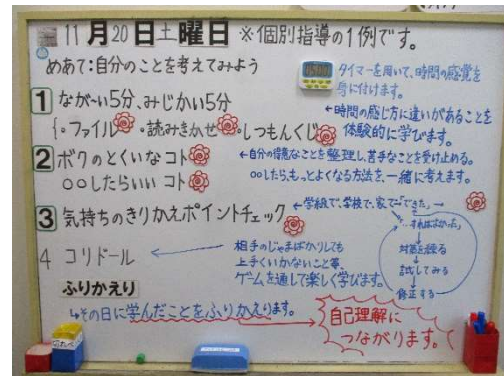 11月20日土曜日 ※個別指導の1例です。
めあて:自分のことを考えてみよう
タイマーを用いて、時間の感覚を
身に付けます。
1 なが〜い5分、みじかい5分
{・ファイル ・読みきかせ ・しつもんくじ
←時間の感じ方に違いがあることを
体験的に学びます。
2 ボクのとくいなコト
○○したらいいコト
←自分の得意なことを整理し、苦手なことを受け止める。
○○したら、もっとよくなる方法を、一緒に考えます。
3 気持ちのきりかえポイントチェック
←学級で、学校で、家で…「できた。」
「…すればよかった。」
対策を練る
試してみる
修正する
4 コリドール
相手のじゃまばかりしても
上手くいかないこと等、
ゲームを通して楽しく学びます。
ふりかえり
↳その日に学んだことをふりかえります。
自己理解に
つながります。